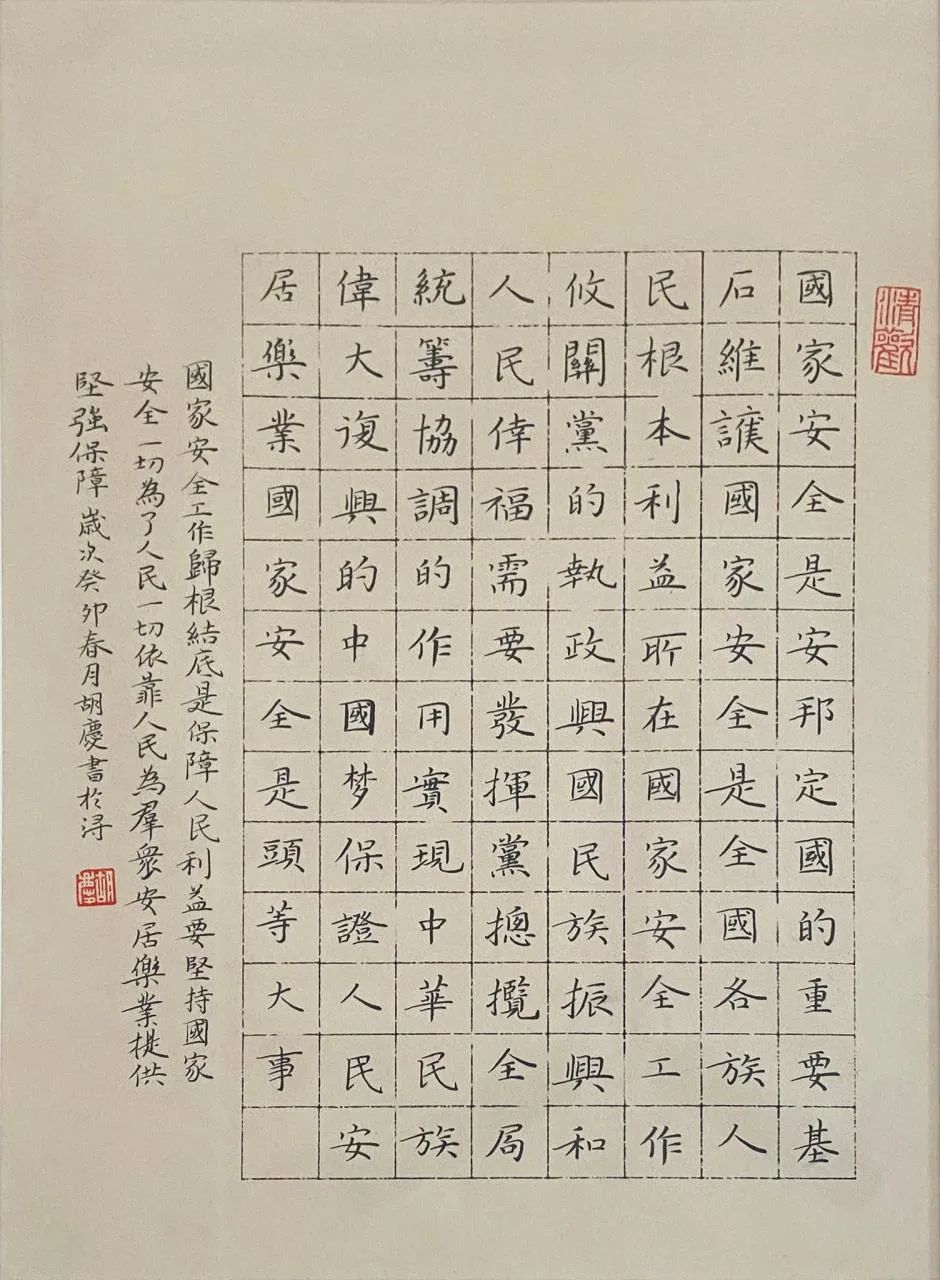 國家安全是安邦定國的重要基
石維護國家安全是全國各族人
民根本利益所在國家安全工作
攸關黨的執政興國民族振興和
人民倖福需要發揮黨總攬全局
統籌協調的作用實現中華民族
偉大復興的中國梦保證人民安
居樂業國家安全是頭等大事
國家安全工作歸根結底是保障人民利益要堅持國家
安全一切為了人民一切依靠人民為羣衆安居樂業提供
堅強保障歲次癸卯春月胡慶書於潯
清觀
胡慶